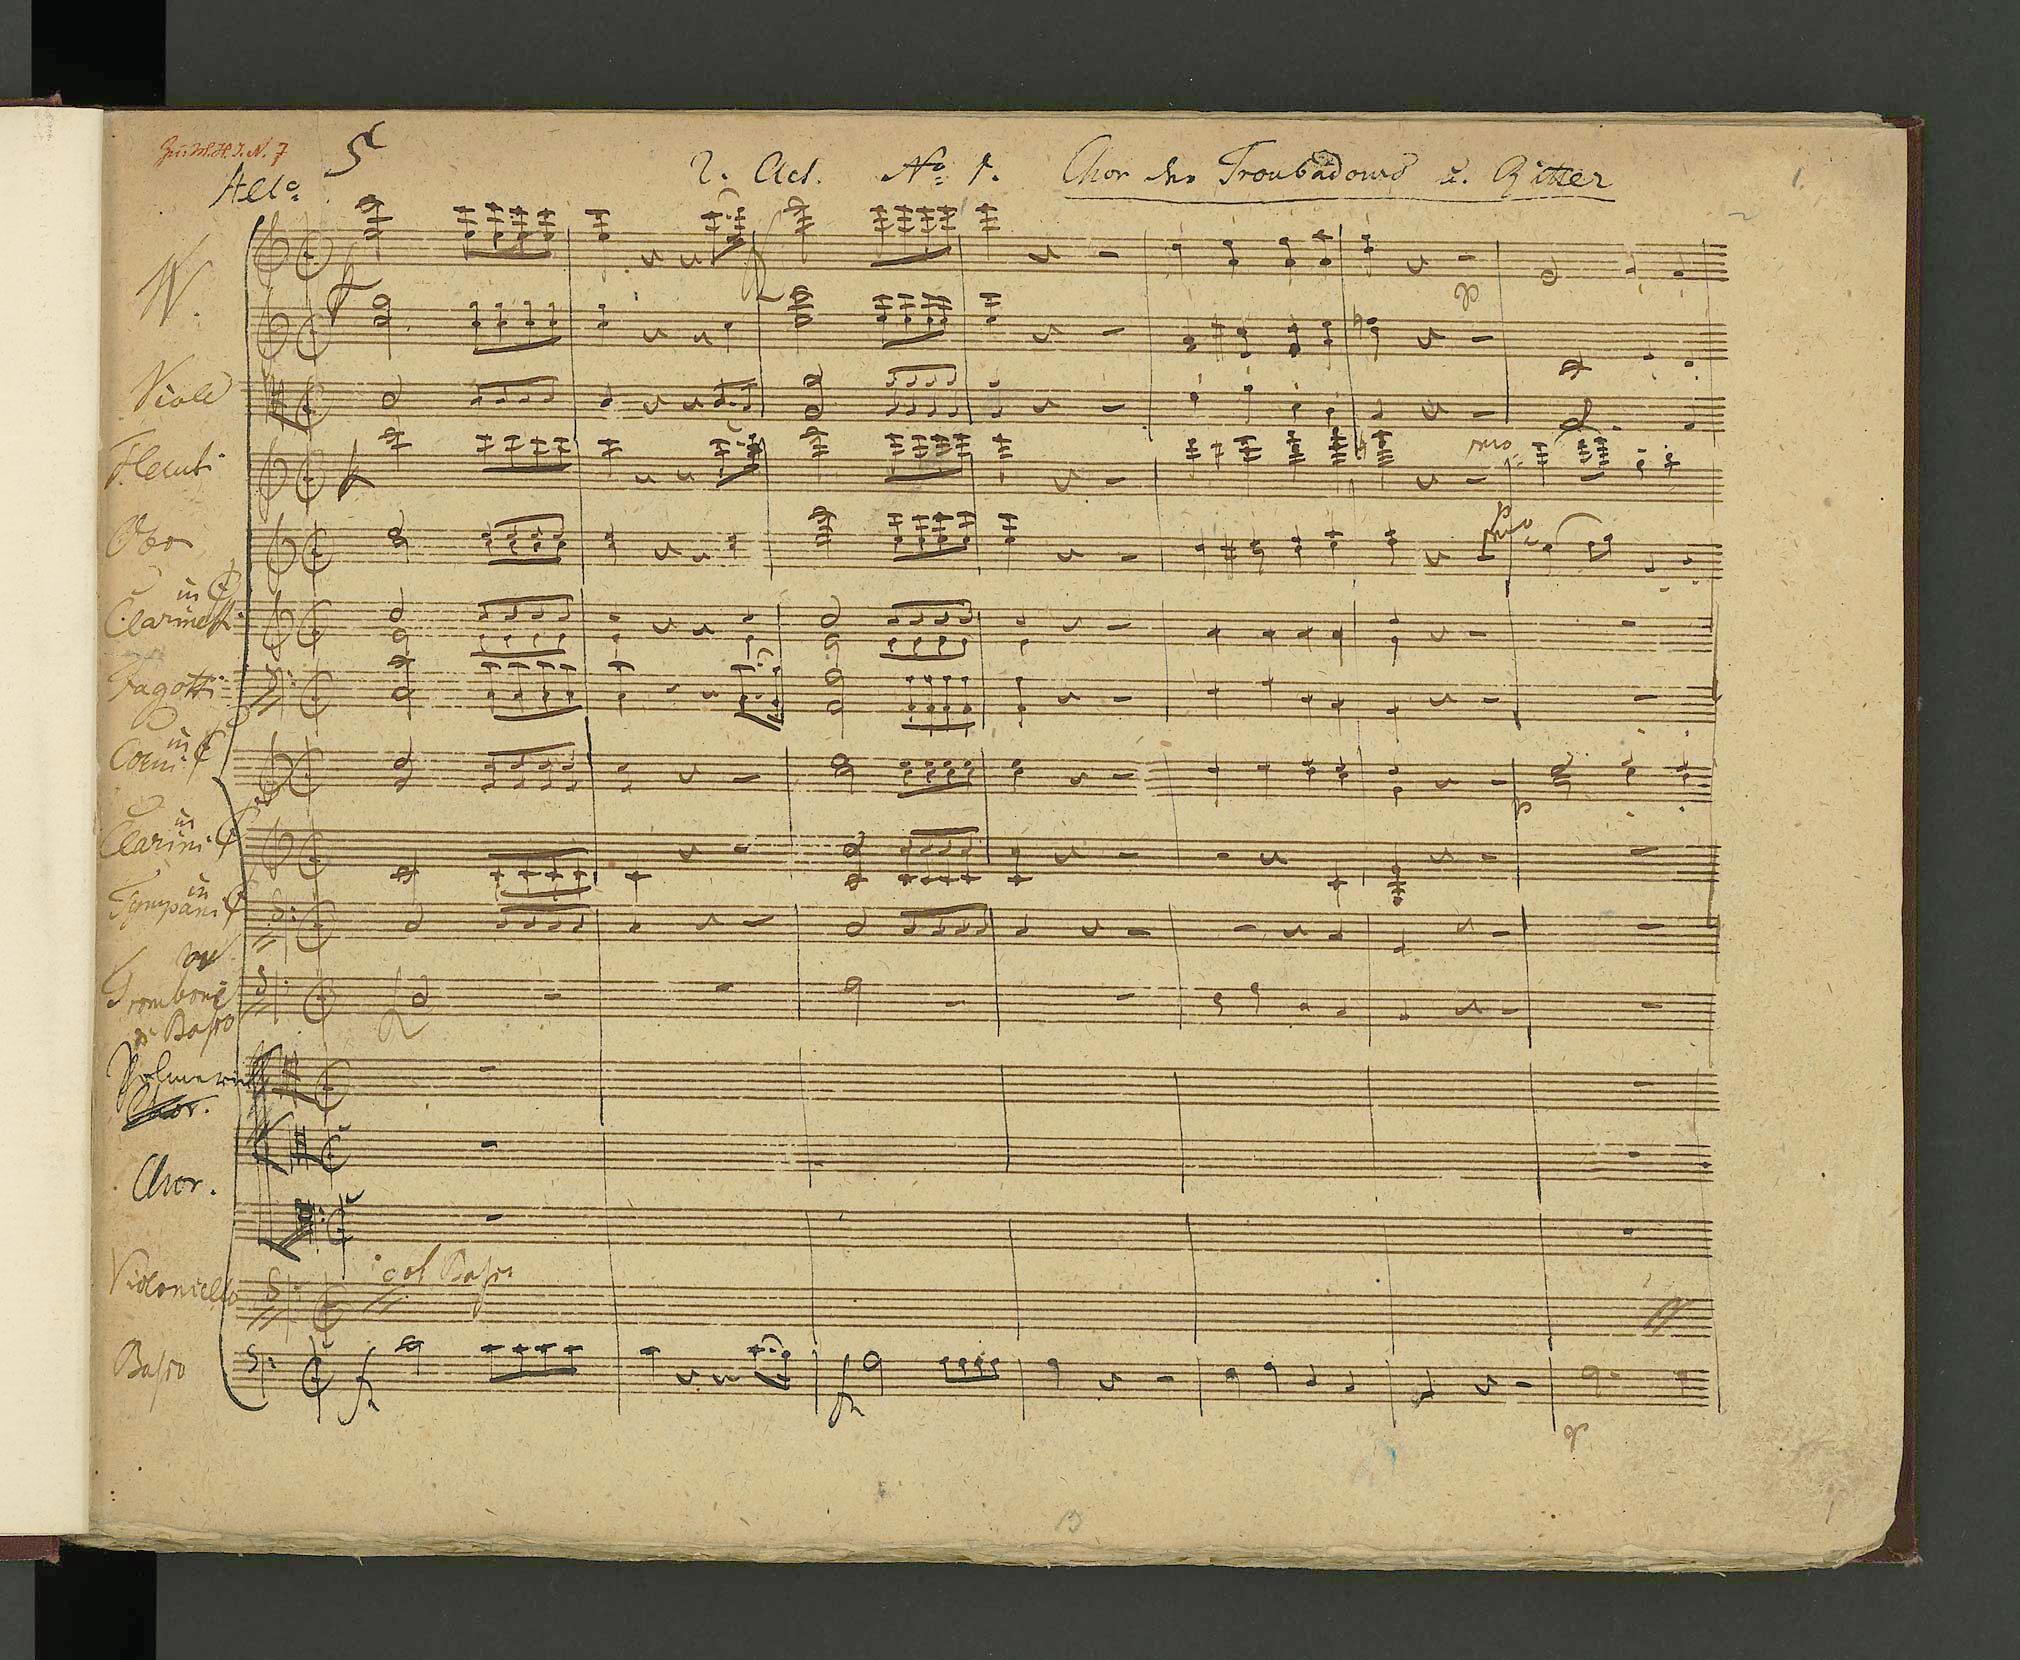 5
2. Act. No 1. Chor der Troubadours u. Ritter
1.
2
Allo
VV.
Viole
f
Flauti
Oboe
in C
Clarinetti
Fagotti
in C
Corni
in C
Clarini
in C
Tympani
Tromboni
di Basso
Palmerin
Chor.
Chor.
Violoncello
col Basso
Basso
p